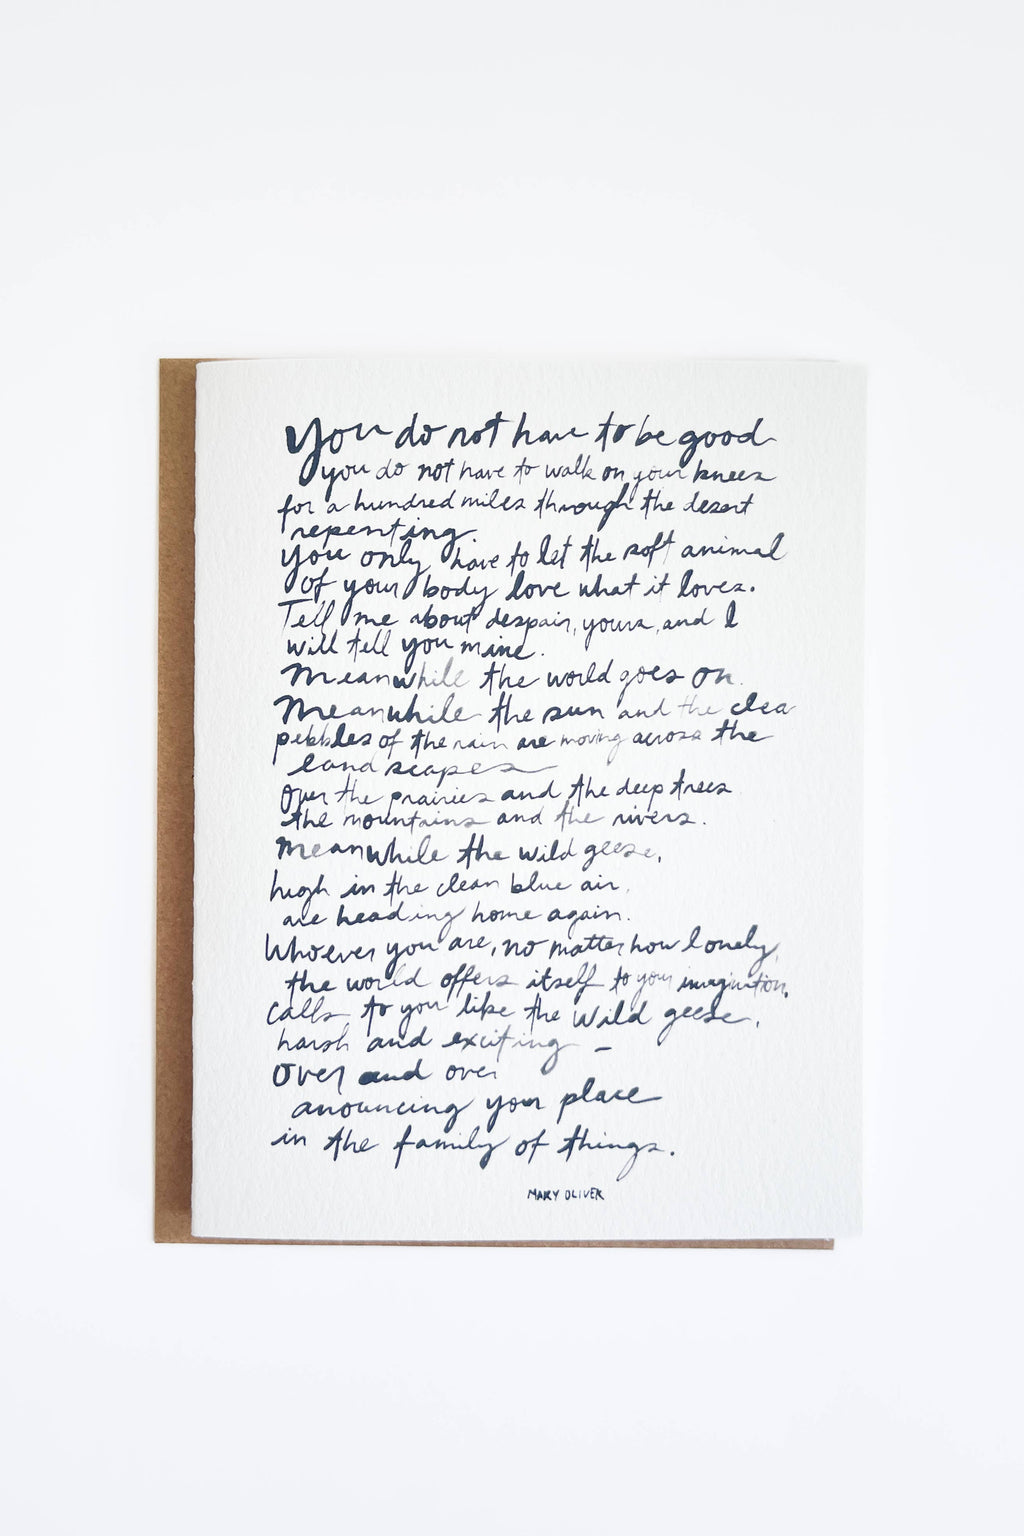 You do not have to be good
you do not have to walk on your knees
for a hundred miles through the desert
repenting.
You only have to let the soft animal
of your body love what it loves.
Tell me about despair, yours, and I
will tell you mine.
Meanwhile the world goes on.
Meanwhile the sun and the clea
pebbles of the rain are moving across the
landscapes
Over the prairies and the deep trees
the mountains and the rivers.
Meanwhile the wild geese,
high in the clean blue air,
are heading home again.
Whoever you are, no matter how lonely,
the world offers itself to your imagination,
calls to you like the wild geese,
harsh and exciting –
Over and over
anouncing your place
in the family of things.
MARY OLIVER